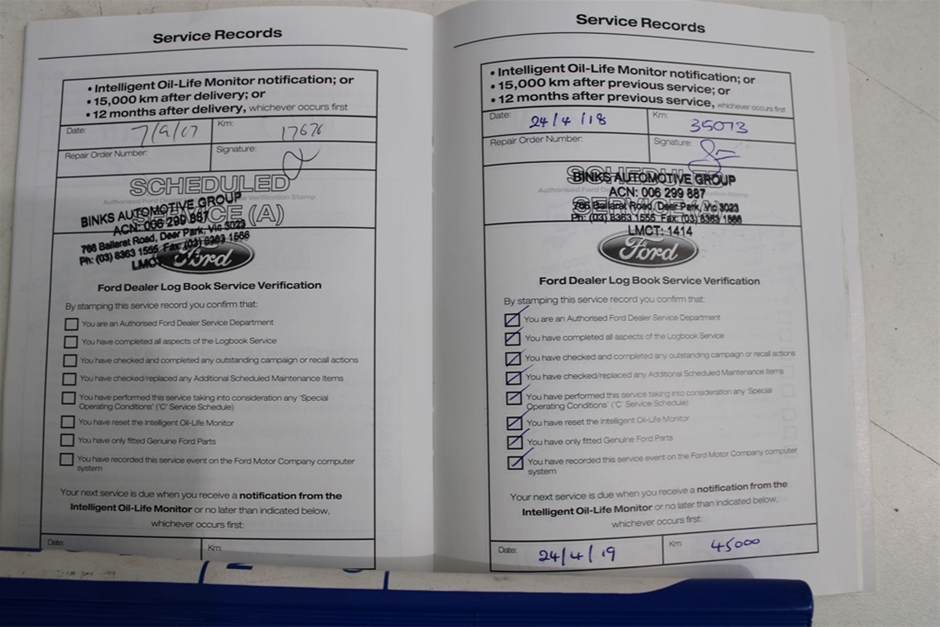 Service Records
• Intelligent Oil-Life Monitor notification; or
• 15,000 km after delivery; or
• 12 months after delivery, whichever occurs first
Date: 7/9/17 Km: 17676
Repair Order Number: Signature:
SCHEDULED
SERVICE (A)
BINKS AUTOMOTIVE GROUP
ACN: 006 299 887
766 Ballarat Road, Deer Park, Vic 3023
Ph: (03) 8363 1555 Fax: (03) 8363 1566
LMCT:
Ford
Ford Dealer Log Book Service Verification
By stamping this service record you confirm that:
You are an Authorised Ford Dealer Service Department
You have completed all aspects of the Logbook Service
You have checked and completed any outstanding campaign or recall actions
You have checked/replaced any Additional Scheduled Maintenance Items
You have performed this service taking into consideration any 'Special
Operating Conditions' ('C' Service Schedule)
You have reset the Intelligent Oil-Life Monitor
You have only fitted Genuine Ford Parts
You have recorded this service event on the Ford Motor Company computer
system
Your next service is due when you receive a notification from the
Intelligent Oil-Life Monitor or no later than indicated below,
whichever occurs first:
Date: Km:
Service Records
• Intelligent Oil-Life Monitor notification; or
• 15,000 km after previous service; or
• 12 months after previous service, whichever occurs first
Date: 24/4/18 Km: 35073
Repair Order Number: Signature:
BINKS AUTOMOTIVE GROUP
ACN: 006 299 887
766 Ballarat Road, Deer Park, Vic 3023
Ph: (03) 8363 1555 Fax: (03) 8363 1566
LMCT: 1414
Ford
Ford Dealer Log Book Service Verification
By stamping this service record you confirm that:
You are an Authorised Ford Dealer Service Department
You have completed all aspects of the Logbook Service
You have checked and completed any outstanding campaign or recall actions
You have checked/replaced any Additional Scheduled Maintenance Items
You have performed this service taking into consideration any 'Special
Operating Conditions' ('C' Service Schedule)
You have reset the Intelligent Oil-Life Monitor
You have only fitted Genuine Ford Parts
You have recorded this service event on the Ford Motor Company computer
system
Your next service is due when you receive a notification from the
Intelligent Oil-Life Monitor or no later than indicated below,
whichever occurs first:
Date: 24/4/19 Km: 45000